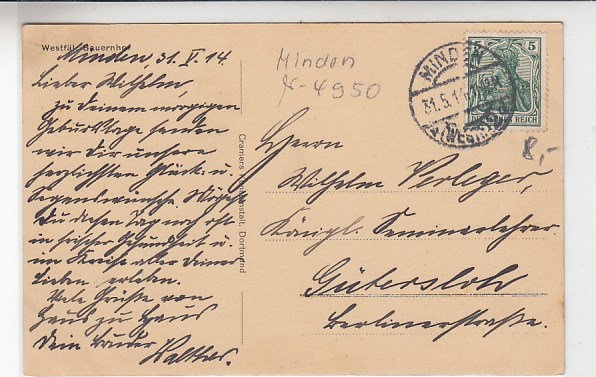 Westfäl. Bauernhof
Minden, 31. V. 14.
Lieber Wilhelm,
zu Deinem morgigen
Geburtstage senden
wir Dir unsere
herzlichsten Glück- u.
Segenswünsche. Mögest
Du diesen Tag noch oft
in frischer Gesundheit u.
im Kreise aller Deiner
Lieben erleben.
Viele Grüße von
Haus zu Haus
Dein Bruder
Walther.
Cramers Kunstanstalt, Dortmund
Minden
x-4950
MINDEN
31.5.14
(WESTF.)
5
DEUTSCHES REICH
8,-
Herrn
Wilhelm Verleger,
Königl. Seminarlehrer
Gütersloh
Berlinerstraße.